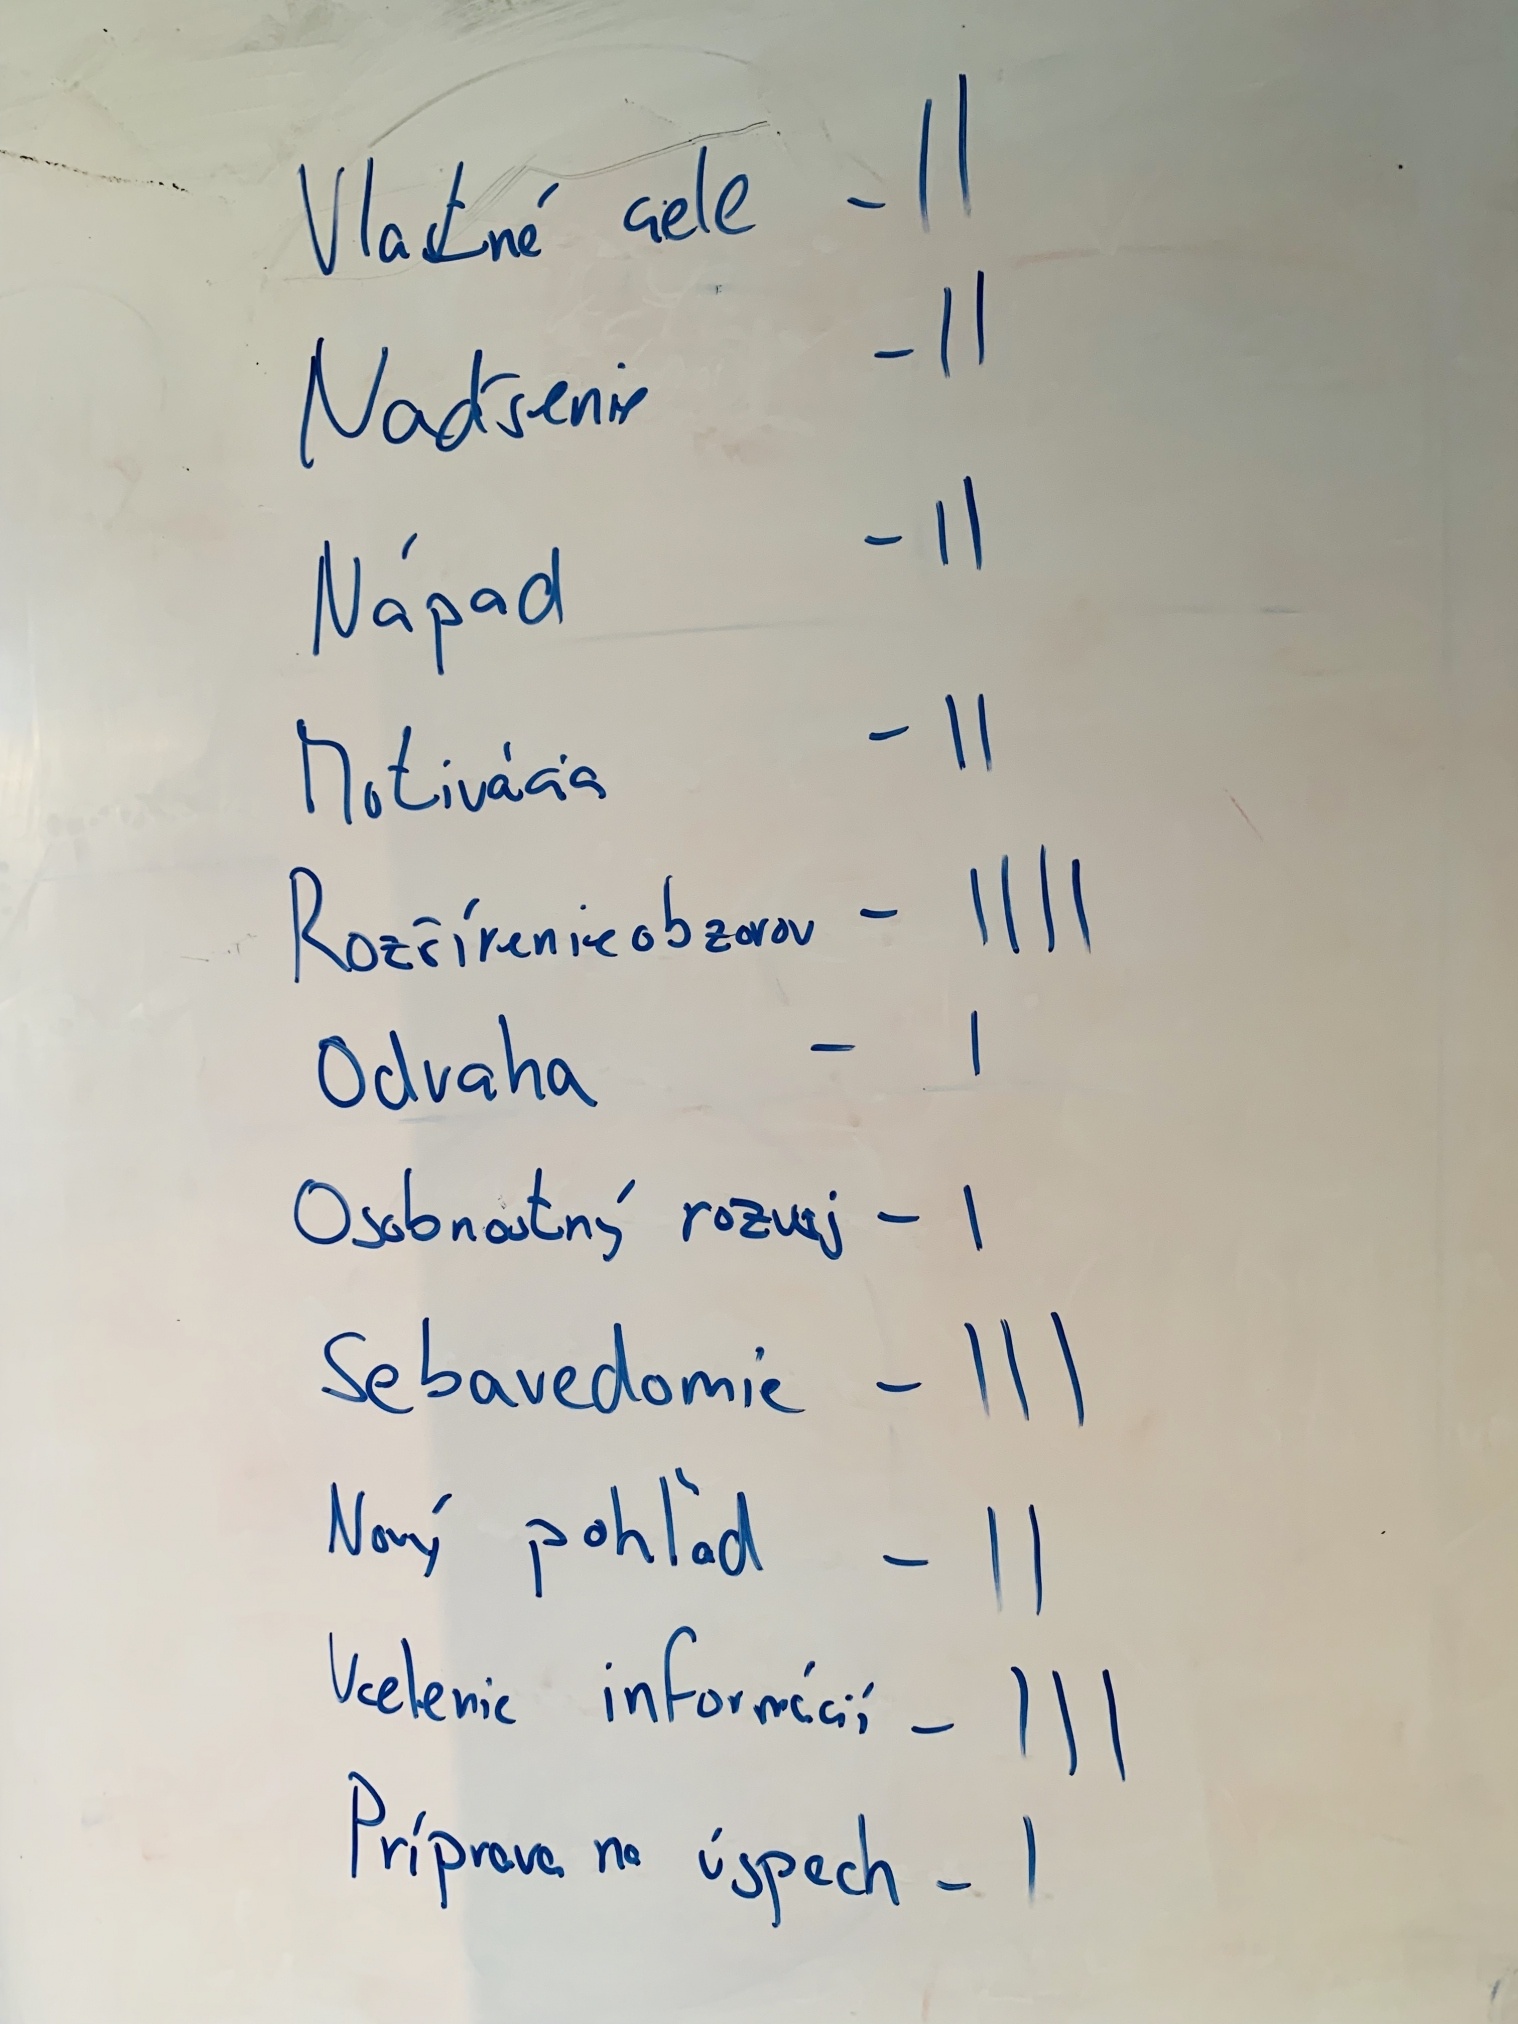 Vlastné ciele - ||
Nadšenie - ||
Nápad - ||
Motivácia - ||
Rozšírenie obzorov - ||||
Odvaha - |
Osobnostný rozvoj - |
Sebavedomie - |||
Nový pohľad - ||
Ucelenie informácií - |||
Príprava na úspech - |